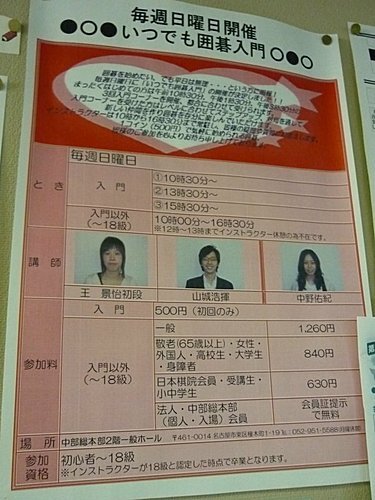 毎週日曜日開催
●○●いつでも囲碁入門○●○
囲碁を始めたい、でも平日は無理・・・という方に朗報！
毎週日曜日に「いつでも囲碁入門」の開催が決定しました！！
毎週日曜日
とき
入門
①10時30分～
②13時30分～
③15時30分～
入門以外
（～18級）
10時00分～16時30分
※12時～13時までインストラクター休憩の為不在です。
講師
王　景怡初段
山城浩揮
中野佑紀
参加料
入門
500円（初回のみ）
入門以外
（～18級）
一般
1,260円
敬老(65歳以上)・女性・
外国人・高校生・大学生
・身障者
840円
日本棋院会員・受講生・
小中学生
630円
法人・中部総本部
（個人・入場）会員
会員証提示
で無料
場所
中部総本部2階一般ホール
〒461-0014 名古屋市東区橦木町1-19 ℡：052-951-5588(日曜休館)
参加
資格
初心者～18級
※インストラクターが18級と認定した時点で卒業となります。